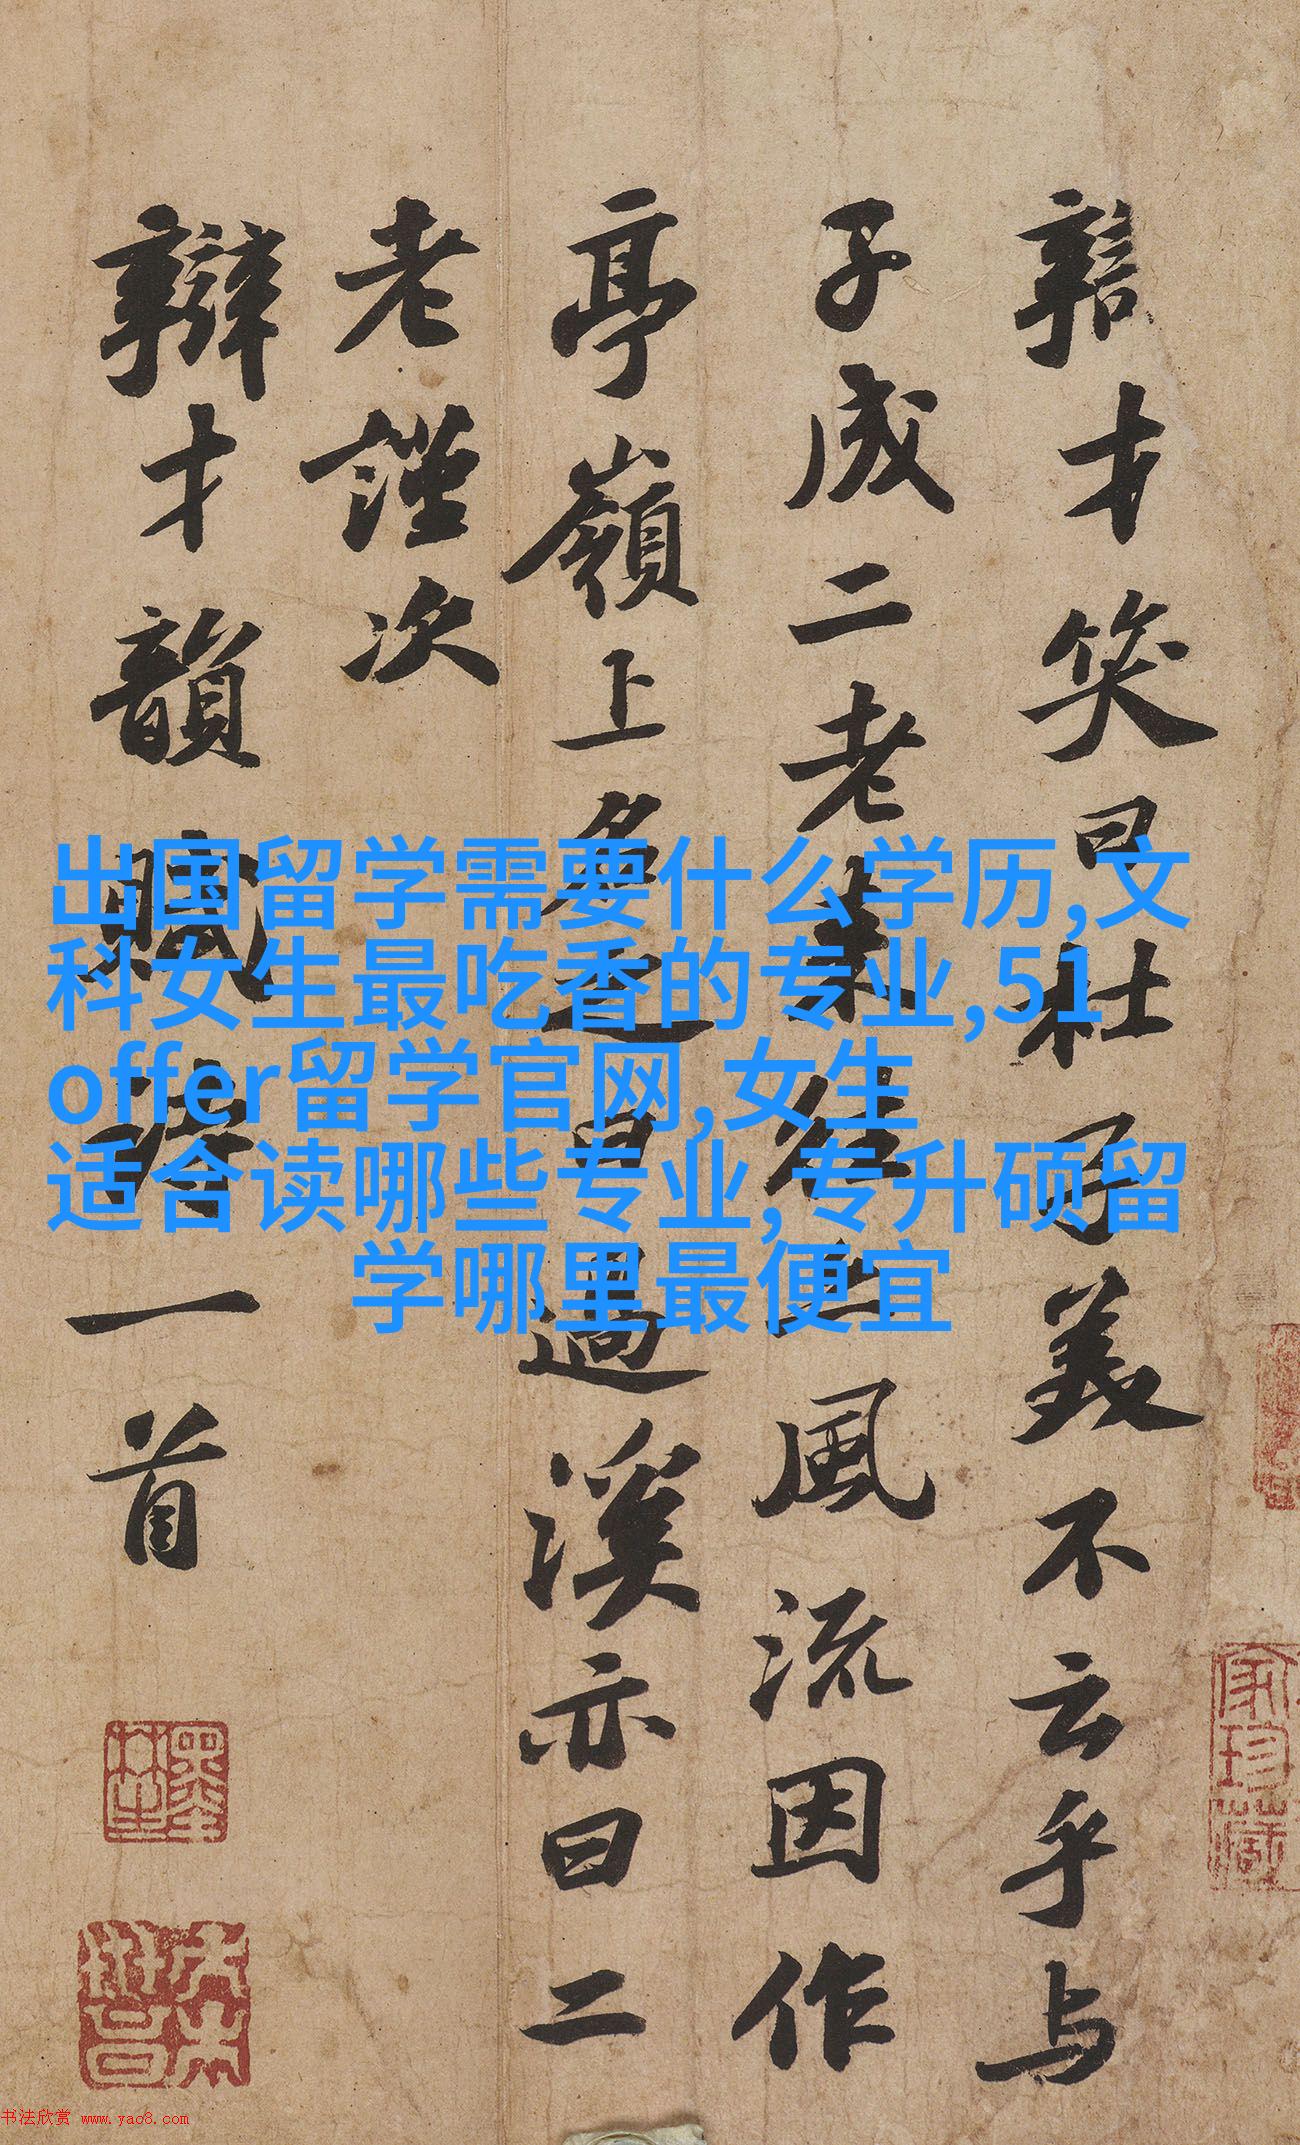 辯才笑曰杜子美不云乎与
子成二老来往亦風流因作
亭嶺上名之曰過溪亦曰二
老謹次
辯才韻賦詩一首
出国留学需要什么学历,文
科女生最吃香的专业,51
offer留学官网,女生
适合读哪些专业,专升硕留
学哪里最便宜
家珍藏
书法欣赏 www.yac8.com